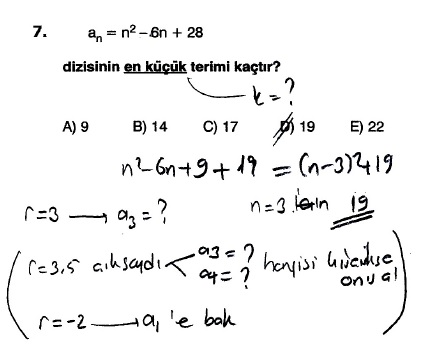 7. aₙ = n² – 6n + 28
dizisinin en küçük terimi kaçtır?
k = ?
A) 9 B) 14 C) 17 D) 19 E) 22
n² - 6n + 9 + 19 = (n-3)² + 19
r = 3 → a₃ = ? n = 3 için 19
r = 3,5 çıksaydı a₃ = ? a₄ = ? hangisi küçükse onu al
r = -2 → a₁ 'e bak